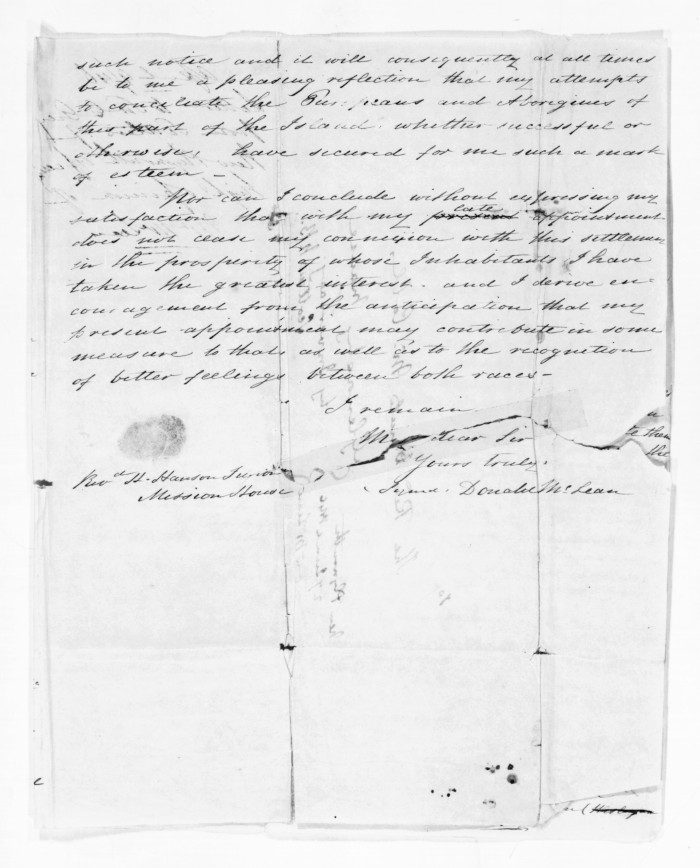 such notice and it will consequently at all times
be to me a pleasing reflection that my attempts
to conciliate the Europeans and Aborigines of
this part of the Island, whether successful or
otherwise, have secured for me such a mark
of esteem –
Nor can I conclude without expressing my
satisfaction that with my present late appointment
does not cease my connexion with this settlement
in the prosperity of whose Inhabitants I have
taken the greatest interest. and I derive en-
couragement from the anticipation that my
present appointment may contribute in some
measure to that, as well as to the recognition
of better feelings between both races –
I remain
My dear Sir
Yours truly.
Signed. Donald McLean
Revd. H. Hanson Turton
Mission House
a
to them
the